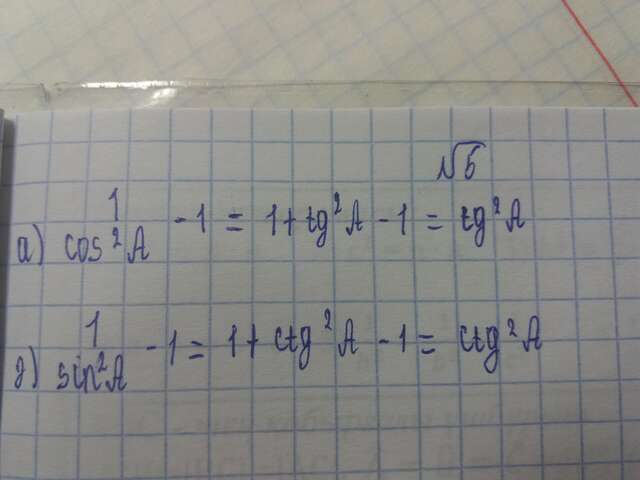 √5
a) 1/cos²A - 1 = 1 + tg²A - 1 = tg²A
g) 1/sin²A - 1 = 1 + ctg²A - 1 = ctg²A